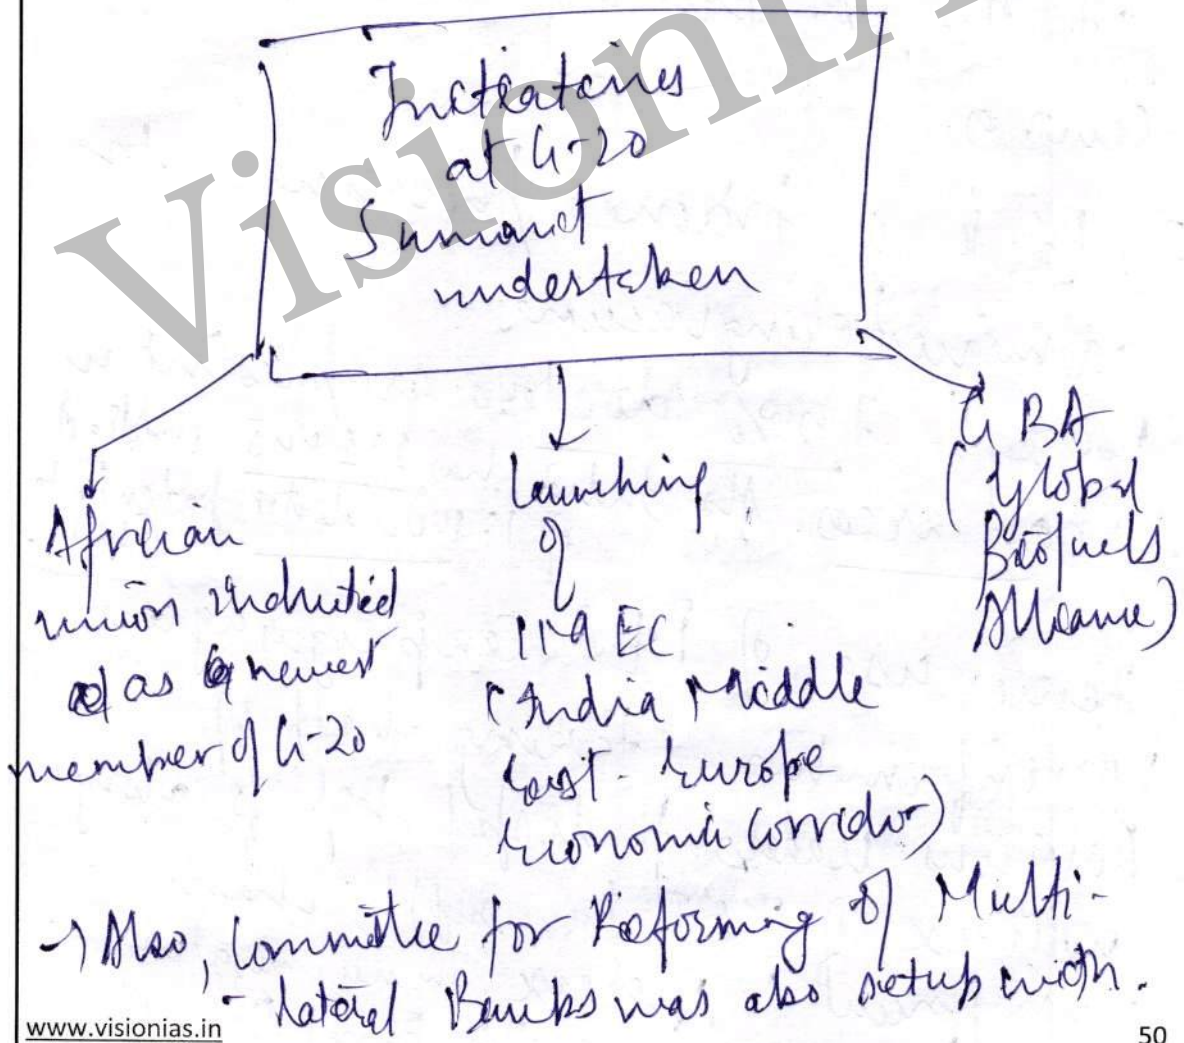 VisionIA
Initiatives
at G-20
Summit
undertaken
African
union inducted
as newest
member of G-20
launching
of
IMEC
(India Middle
East - Europe
Economic Corridor)
GBA
(Global
Biofuels
Alliance)
→ Also, Committee for Reforming of Multi-
- lateral Banks was also setup with.
www.visionias.in
50